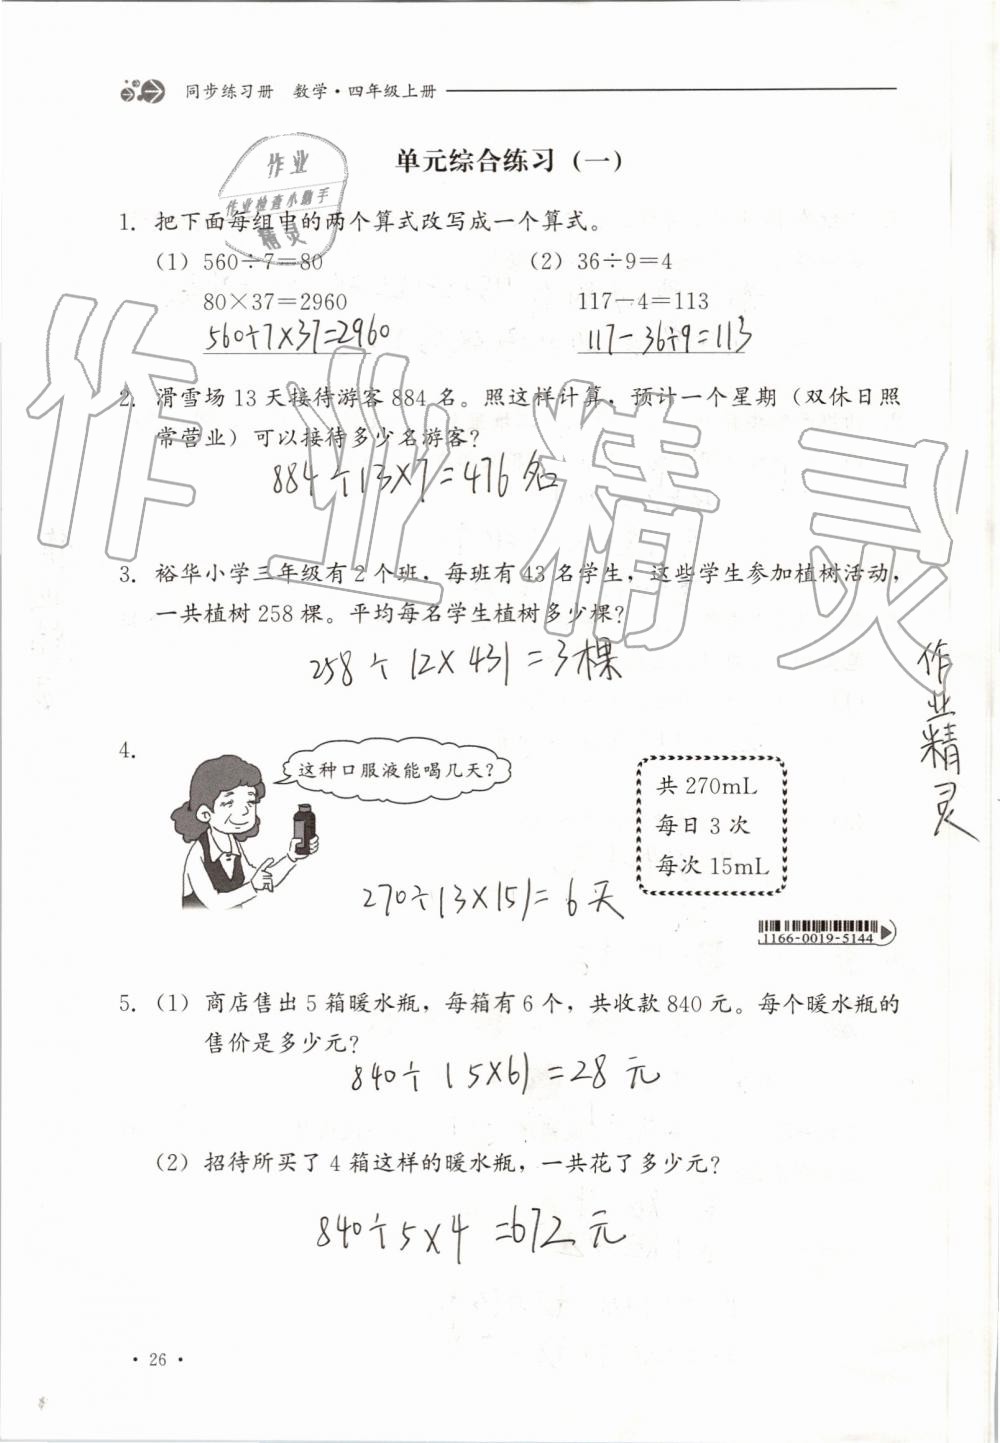 同步练习册 数学·四年级上册
单元综合练习(一)
作业
作业检查小助手
精灵
1. 把下面每组中的两个算式改写成一个算式。
(1) 560÷7=80 (2) 36÷9=4
80×37=2960 117-4=113
560÷7×37=2960 117-36÷9=113
2. 滑雪场 13 天接待游客 884 名。照这样计算，预计一个星期（双休日照
常营业）可以接待多少名游客？
884÷13×7=476名
3. 裕华小学三年级有 2 个班，每班有 43 名学生，这些学生参加植树活动，
一共植树 258 棵。平均每名学生植树多少棵？
258÷(2×43)=3棵
4.
这种口服液能喝几天？
共 270mL
每日 3 次
每次 15mL
270÷(3×15)=6天
1166-0019-5144
5. (1) 商店售出 5 箱暖水瓶，每箱有 6 个，共收款 840 元。每个暖水瓶的
售价是多少元？
840÷(5×6)=28元
(2) 招待所买了 4 箱这样的暖水瓶，一共花了多少元？
840÷5×4=672元
·26·
作业精灵
作业精灵